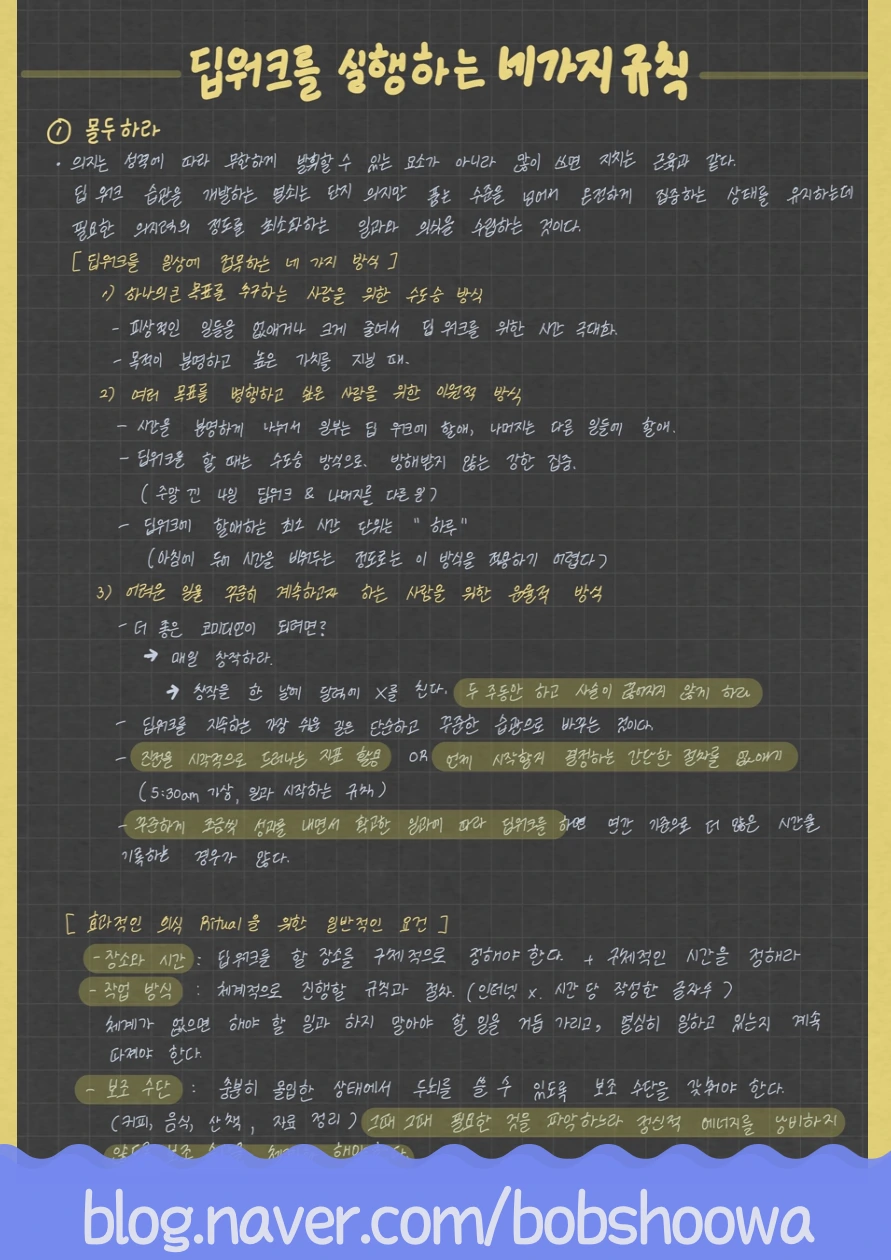 딥워크를 실행하는 네가지 규칙
① 몰두하라
· 의지는 성격에 따라 무한하게 발휘할 수 있는 요소가 아니라 많이 쓰면 지치는 근육과 같다.
딥 워크 습관을 개발하는 열쇠는 단지 의지만 품는 수준을 넘어서 온전하게 집중하는 상태를 유지하는데
필요한 의지력의 정도를 최소화하는 일과와 의식을 수립하는 것이다.
[ 딥워크를 일상에 접목하는 네 가지 방식 ]
1) 하나의 큰 목표를 추구하는 사람을 위한 수도승 방식
- 피상적인 일들을 없애거나 크게 줄여서 딥 워크를 위한 시간 극대화.
- 목적이 분명하고 높은 가치를 지닐 때.
2) 여러 목표를 병행하고 싶은 사람을 위한 이원적 방식
- 시간을 분명하게 나눠서 일부는 딥 워크에 할애, 나머지는 다른 일들에 할애.
- 딥워크를 할 때는 수도승 방식으로. 방해받지 않는 강한 집중.
( 주말 낀 4일 딥워크 & 나머지를 다른 일 )
- 딥워크에 할애하는 최소 시간 단위는 "하루"
(아침에 두어 시간을 비워두는 정도로는 이 방식을 적용하기 어렵다)
3) 어려운 일을 꾸준히 계속하고자 하는 사람을 위한 운율적 방식
- 더 좋은 코미디언이 되려면?
→ 매일 창작하라.
→ 창작을 한 날에 달력에 X를 친다. 두 주동안 하고 사슬이 끊어지지 않게 하라
- 딥워크를 지속하는 가장 쉬운 길은 단순하고 꾸준한 습관으로 바꾸는 것이다.
- 진전을 시각적으로 드러내는 지표 활용 OR 언제 시작할지 결정하는 간단한 절차를 없애기
(5:30am 기상, 일과 시작하는 규칙)
- 꾸준하게 조금씩 성과를 내면서 확고한 일과에 따라 딥워크를 하면 연간 기준으로 더 많은 시간을
기록하는 경우가 많다.
[ 효과적인 의식 Ritual을 위한 일반적인 요건 ]
- 장소와 시간 : 딥워크를 할 장소를 구체적으로 정해야 한다. + 구체적인 시간을 정해라
- 작업 방식 : 체계적으로 진행할 규칙과 절차. (인터넷 x. 시간 당 작성한 글자수 )
체계가 없으면 해야 할 일과 하지 말아야 할 일을 거듭 가리고, 열심히 일하고 있는지 계속
따져야 한다.
- 보조 수단 : 충분히 몰입한 상태에서 두뇌를 쓸 수 있도록 보조 수단을 갖춰야 한다.
(커피, 음식, 산책, 자료 정리) 그때 그때 필요한 것을 파악하느라 정신적 에너지를 낭비하지
blog.naver.com/bobshoowa